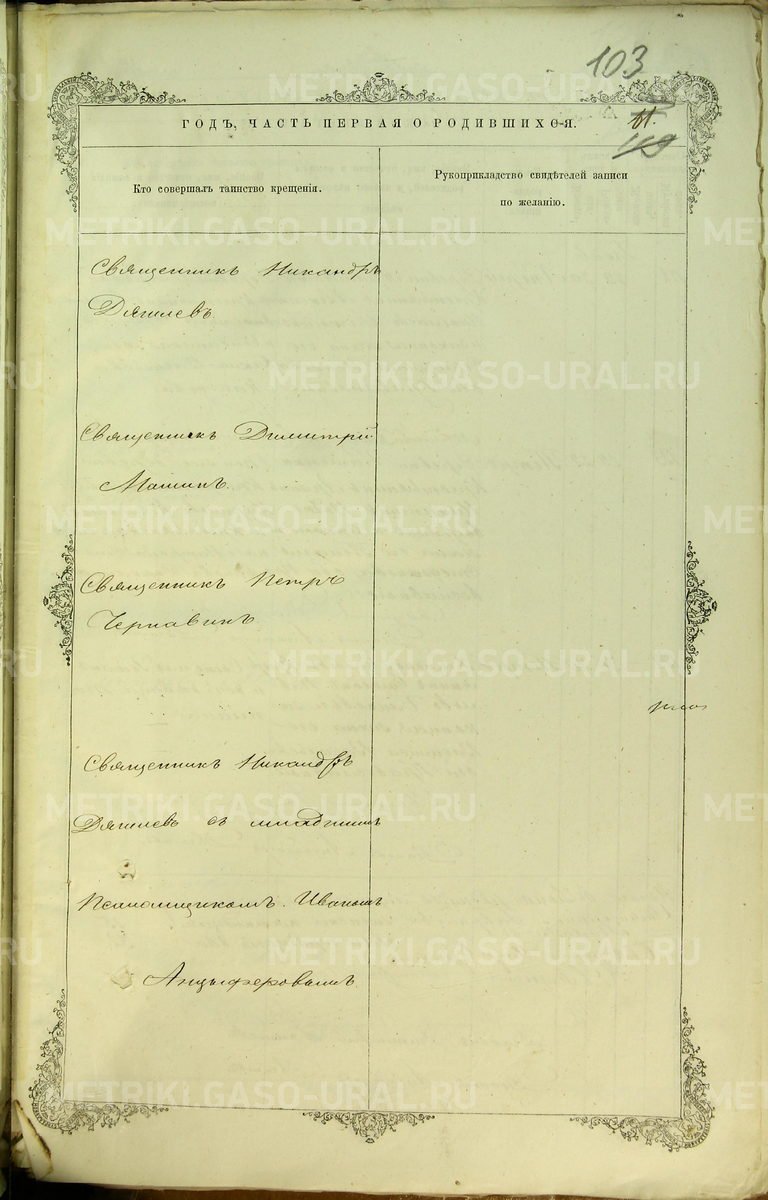 103
ГОДЪ, ЧАСТЬ ПЕРВАЯ О РОДИВШИХСЯ.
Кто совершалъ таинство крещенія.
Рукоприкладство свидѣтелей записи
по желанію.
Священникъ Никандръ
Дягилевъ
Священникъ Димитрій
Машинъ
Священникъ Петръ
Чернавинъ
Священникъ Никандръ
Дягилевъ съ младшимъ
Псаломщикомъ Иваномъ
Анцыферовымъ
METRIKI.GASO-URAL.RU